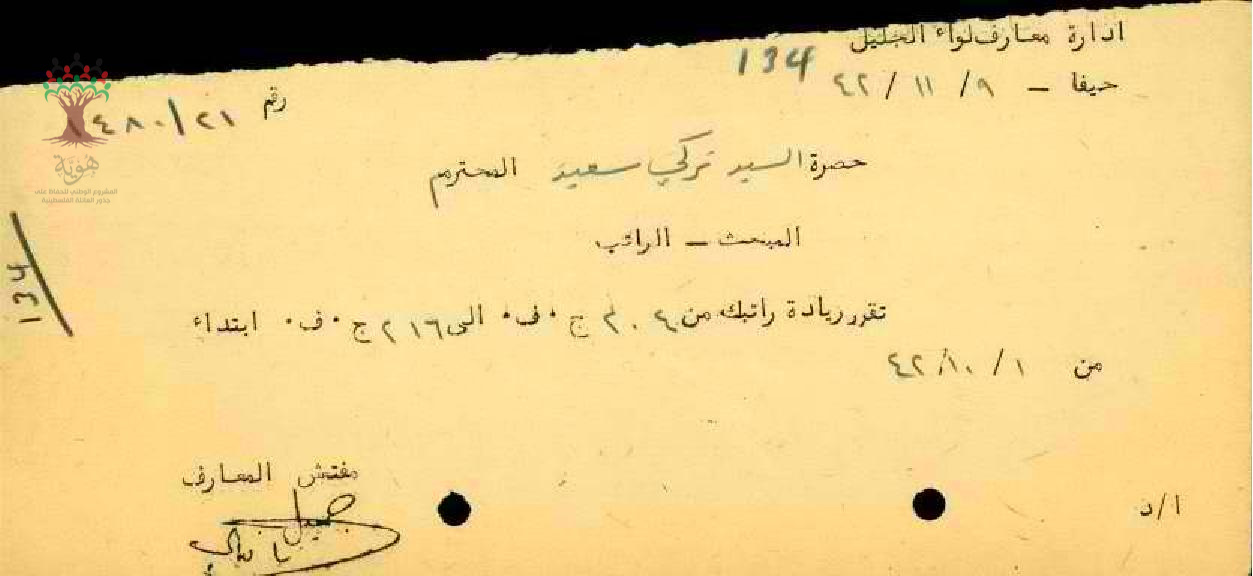 ادارة معارف لواء الجليل
134
حيفا - ٩ / ١١ / ٤٢
رقم ١٤٨٠/٢١
هوية
المشروع الوطني للحفاظ على
جذور العائلة الفلسطينية
حضرة السيد تركي سعيد المحترم
134
المبحث - الراتب
تقرر زيادة راتبك من ٢٠٤ ج ٠ ف ٠ الى ٢١٦ ج ٠ ف ٠ ابتداء
من ١ / ١٠ / ٤٢
مفتش المعارف
جميل
ا/د